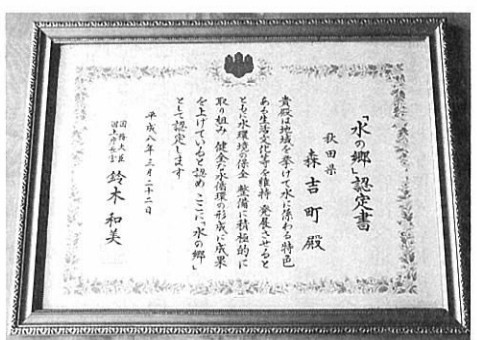 「水の郷」認定書
秋田県
森吉町殿
貴殿は地域を挙げて水に係わる特色
ある生活文化等を維持 発展させると
ともに水環境の保全 整備に積極的に
取り組み 健全な水循環の形成に成果
を上げていると認め ここに「水の郷」
として認定します
平成八年三月二十二日
国務大臣
国土庁長官
鈴木和美